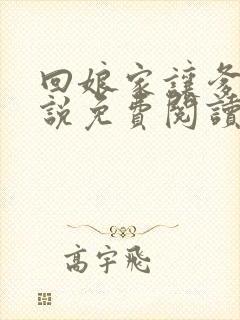 回娘家讓爹
說免費閱讀
高宇飛